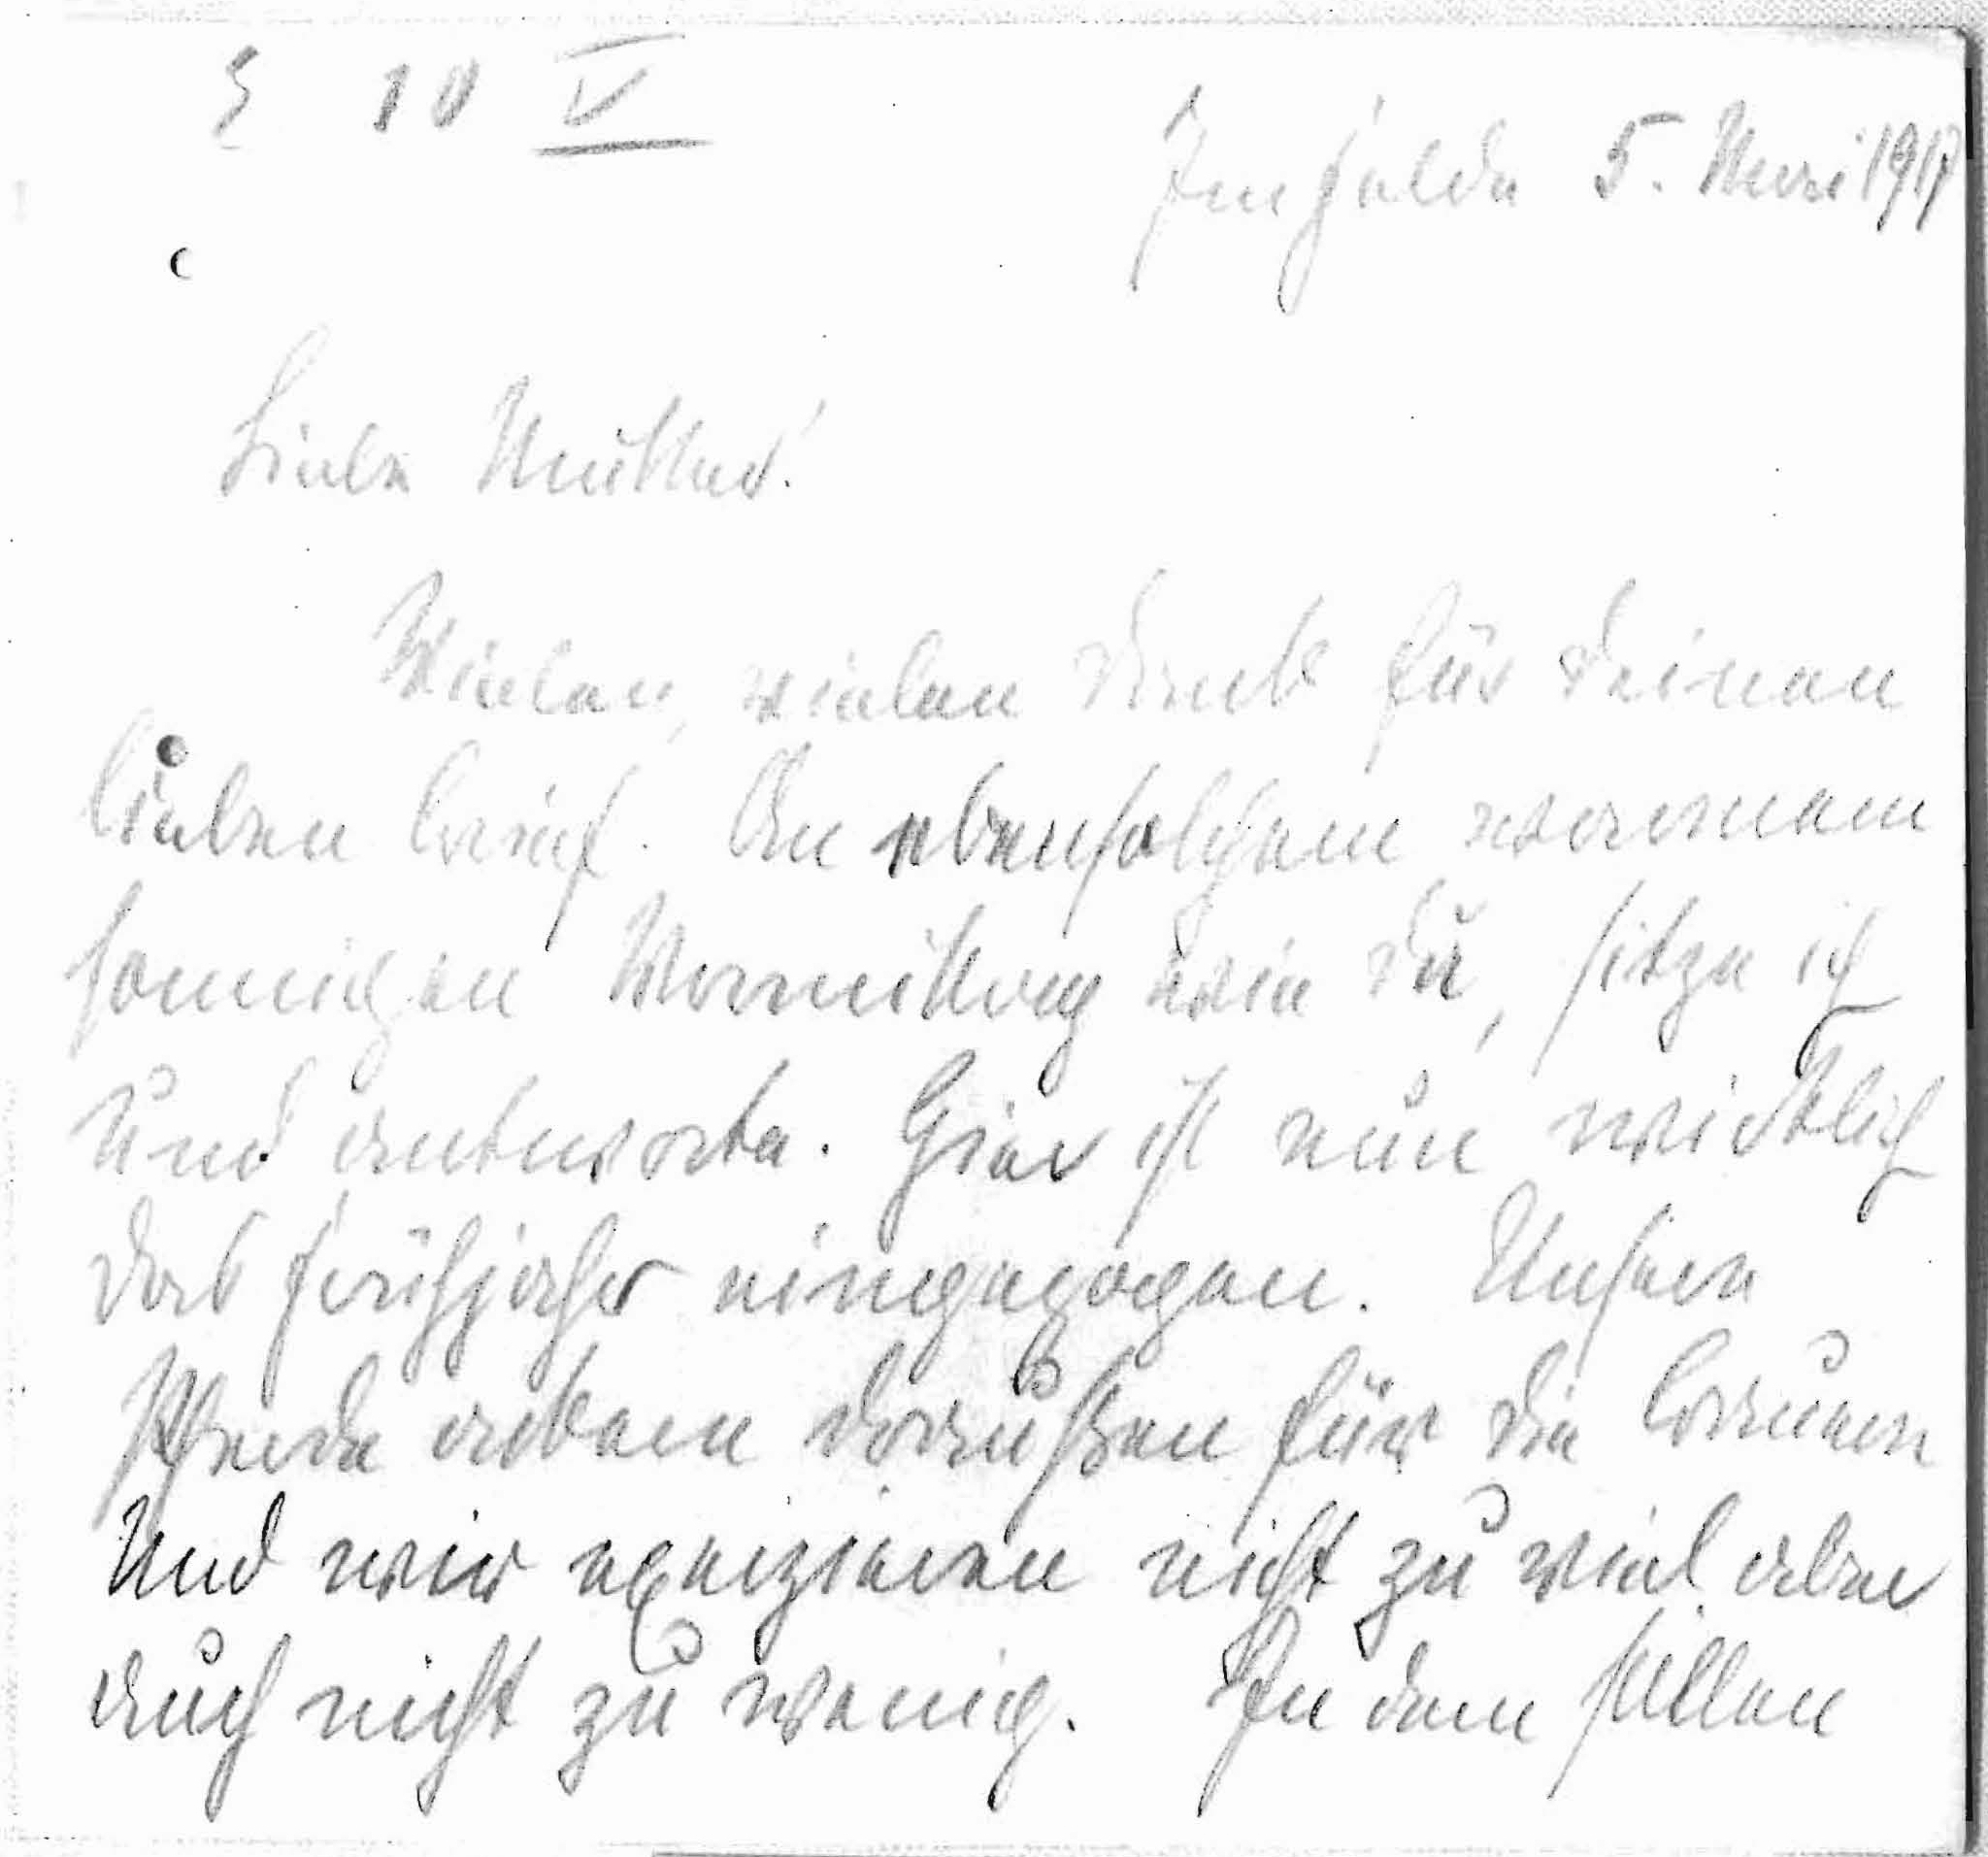 E 10 V
Im Felde 5. Mai 1917
Liebe Mutter!
Vielen, vielen Dank für Deinen
lieben Brief. An ebensolchem warmem
sonnigen Vormittag wie Du, sitze ich
und antworte. Hier ist nun wirklich
das Frühjahr eingezogen. Unsere
Pferde ackern draußen für die Bauern
und wir exerzieren nicht zu viel aber
auch nicht zu wenig. In dem stillen